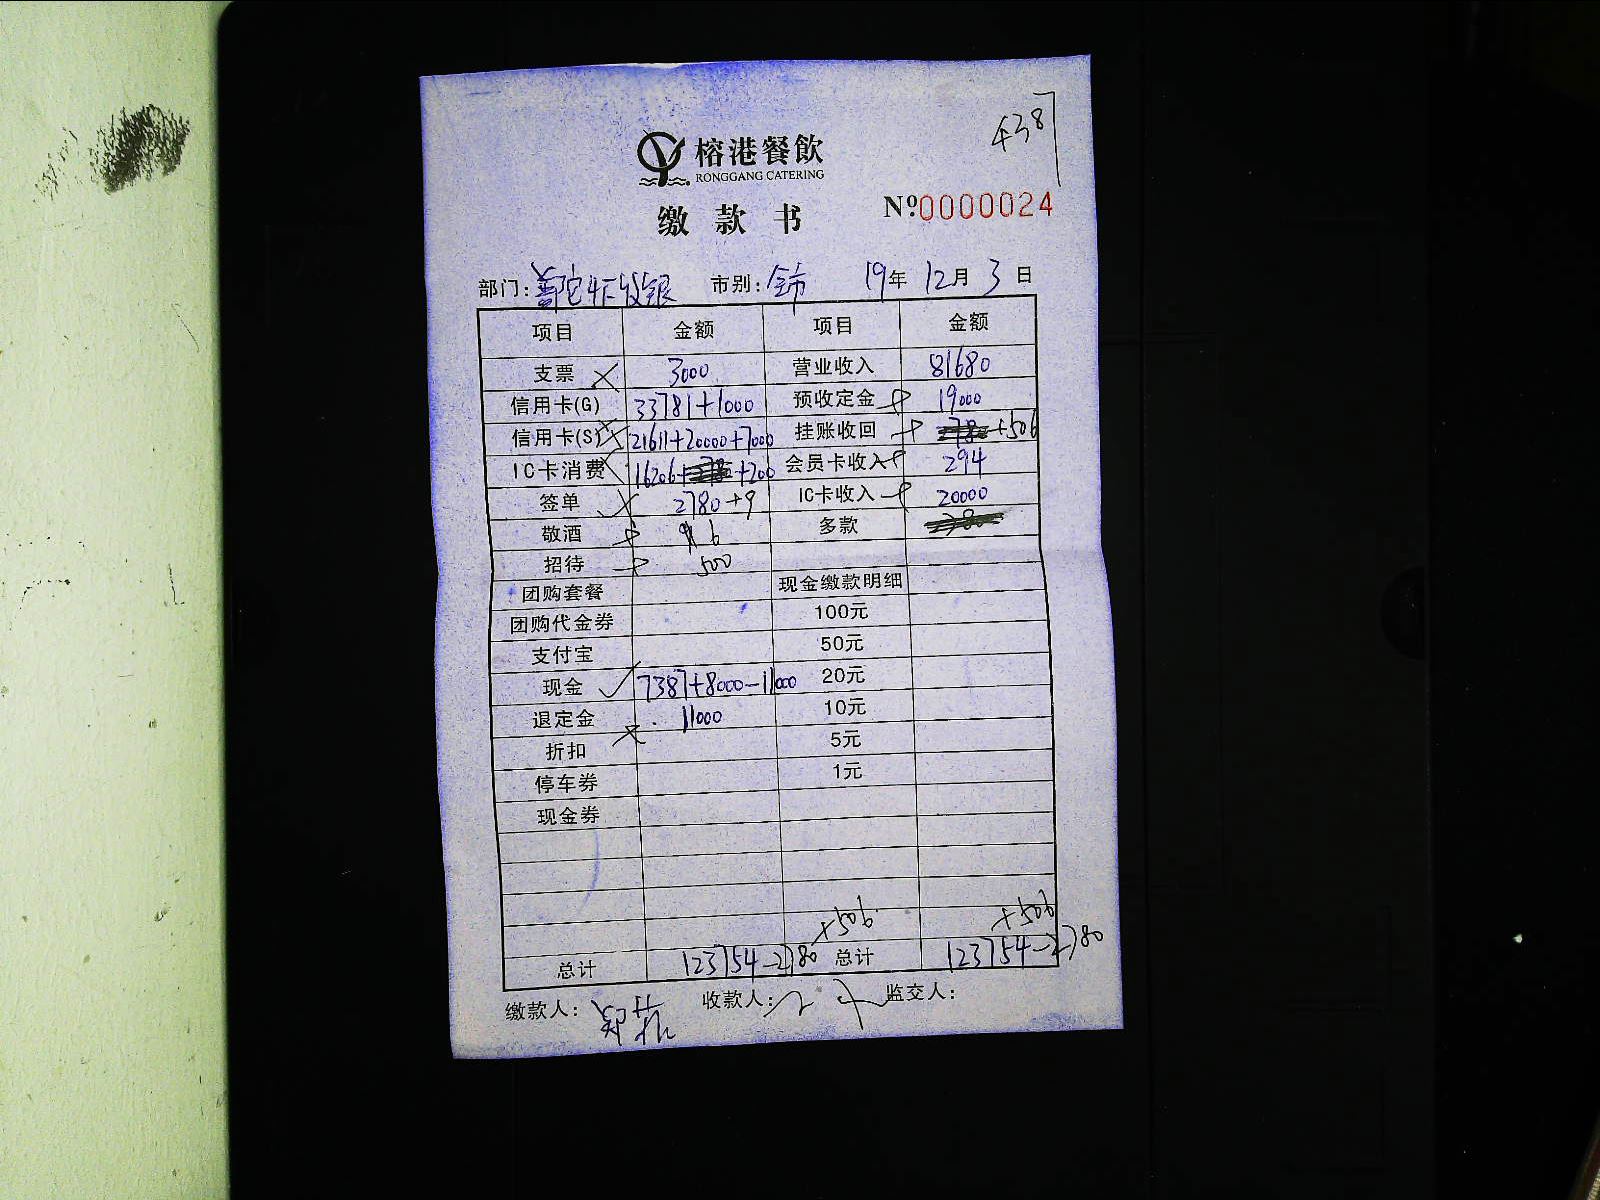 438
榕港餐飲
RONGGANG CATERING
缴款书
Nº0000024
部门: 市别:全市 19年12月3日
项目 金额 项目 金额
支票 3000 营业收入 81680
信用卡(G) 33781+1000 预收定金 19000
信用卡(S) 21611+20000+7000 挂账收回 +506
IC卡消费 16206+ +200 会员卡收入 294
签单 2780+9 IC卡收入 20000
敬酒 6 多款
招待 500
团购套餐 现金缴款明细
团购代金券 100元
支付宝 50元
现金 7387+8000-11000 20元
退定金 11000 10元
折扣 5元
停车券 1元
现金券
+506 +506
总计 123754-2780 总计 123754-2780
缴款人: 收款人: 监交人: